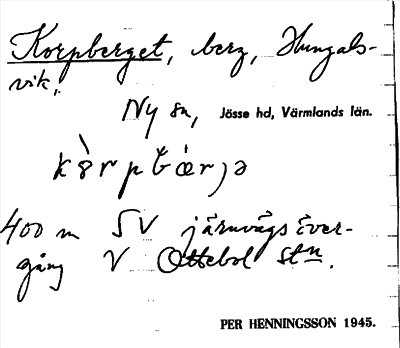 Korpberget, berg, Hungals-
vik.
Ny sn, Jösse hd, Värmlands län.
400 m SV järnvägsöver-
gång V Ottebol stn.
PER HENNINGSSON 1945.